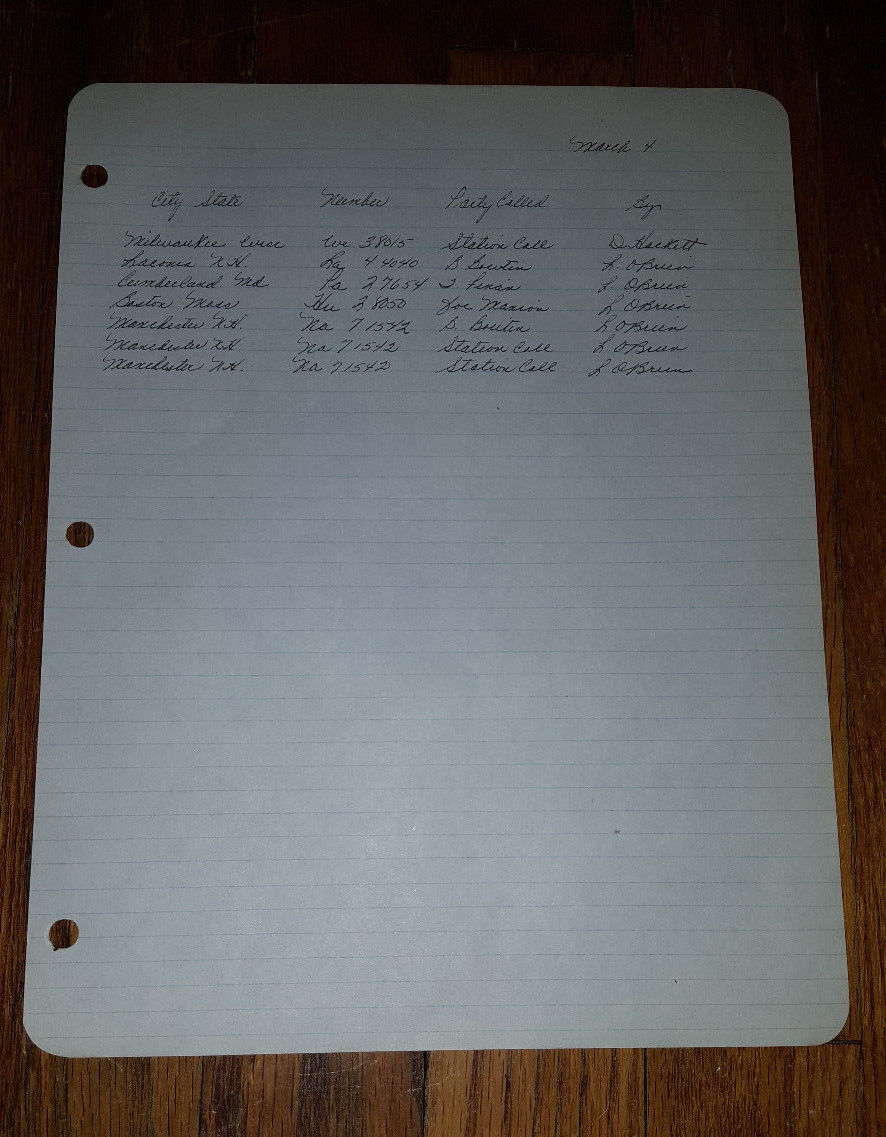 March 4
City State Number Party Called By
Milwaukee Wisc We 38015 Station Call D. Hackett
Laconia N.H. La 4 4040 B. Boutin L. OBrien
Cumberland Md Pa 27654 T. Finan L OBrien
Boston Mass Hu 2 8050 Joe Manion L OBrien
Manchester N.H. Na 7 1542 B. Boutin L OBrien
Manchester N.H Na 7 1542 Station Call L OBrien
Manchester N.H. Na 71542 Station Call L OBrien